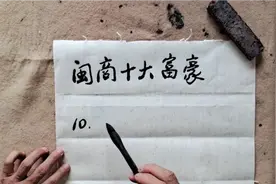 闽商十大富豪
10.